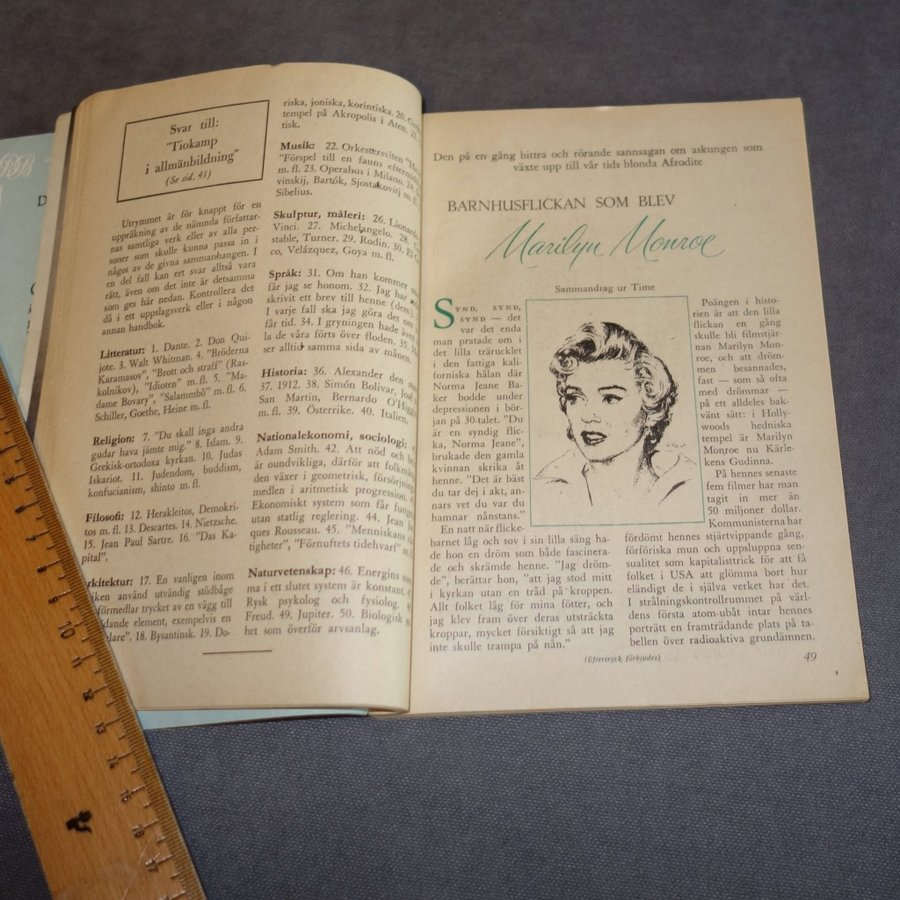 Svar till:
"Tiokamp
i allmänbildning"
(Se sid. 43)
Utrymmet är för knappt för en
uppräkning av de nämnda författar-
nas samtliga verk eller av alla per-
soner som skulle kunna passa in i
något av de givna sammanhangen. I
en del fall kan ert svar alltså vara
rätt, även om det inte är detsamma
som ges här nedan. Kontrollera det
då i ett uppslagsverk eller i någon
annan handbok.
Litteratur: 1. Dante. 2. Don Qui-
jote. 3. Walt Whitman. 4. "Bröderna
Karamasov", "Brott och straff" (Ras-
kolnikov), "Idioten" m. fl. 5. "Ma-
dame Bovary", "Salammbô" m. fl. 6.
Schiller, Goethe, Heine m. fl.
Religion: 7. "Du skall inga andra
gudar hava jämte mig." 8. Islam. 9.
Grekisk-ortodoxa kyrkan. 10. Judas
Iskariot. 11. Judendom, buddism,
konfucianism, shinto m. fl.
Filosofi: 12. Herakleitos, Demokri-
tos m. fl. 13. Descartes. 14. Nietzsche.
15. Jean Paul Sartre. 16. "Das Ka-
pital".
rkitektur: 17. En vanligen inom
iken använd utvändig stödbåge
förmedlar trycket av en vägg till
dande element, exempelvis en
lare". 18. Bysantinsk. 19. Do-
riska, joniska, korintiska. 20.
tempel på Akropolis i Aten. 21.
tisk.
Musik: 22. Orkestersviten
"Förspel till en fauns eftermiddag"
m. fl. 23. Operahus i Milano. 24.
vinskij, Bartók, Sjostakovitj m. fl.
Sibelius.
Skulptur, måleri: 26. Lionardo
Vinci. 27. Michelangelo. 28.
stable, Turner. 29. Rodin. 30. El
co, Velázquez, Goya m. fl.
Språk: 31. Om han kommer
får jag se honom. 32. Jag har
skrivit ett brev till henne (dem).
I varje fall ska jag göra det om
får tid. 34. I gryningen hade
la de våra förts över floden. 35.
ser alltid samma sida av månen.
Historia: 36. Alexander den
37. 1912. 38. Simón Bolívar, José
San Martin, Bernardo O'Higgins
m. fl. 39. Österrike. 40. Italien.
Nationalekonomi, sociologi:
Adam Smith. 42. Att nöd och
är oundvikliga, därför att folkmäng-
den växer i geometrisk, försörjnings-
medlen i aritmetisk progression.
Ekonomiskt system som får fungera
utan statlig reglering. 44. Jean
ques Rousseau. 45. "Människans
tigheter", "Förnuftets tidehvarf" m.
Naturvetenskap: 46. Energins
ma i ett slutet system är konstant.
Rysk psykolog och fysiolog.
Freud. 49. Jupiter. 50. Biologisk
het som överför arvsanlag.
Den på en gång bittra och rörande sannsagan om askungen som
växte upp till vår tids blonda Afrodite
BARNHUSFLICKAN SOM BLEV
Marilyn Monroe
Sammandrag ur Time
SYND, SYND,
SYND — det
var det enda
man pratade om i
det lilla trärucklet
i den fattiga kali-
forniska hålan där
Norma Jeane Ba-
ker bodde under
depressionen i bör-
jan på 30-talet. "Du
är en syndig flic-
ka, Norma Jeane",
brukade den gamla
kvinnan skrika åt
henne. "Det är bäst
du tar dej i akt, an-
nars vet du var du
hamnar nånstans."
En natt när flicke-
barnet låg och sov i sin lilla säng ha-
de hon en dröm som både fascinera-
de och skrämde henne. "Jag dröm-
de", berättar hon, "att jag stod mitt
i kyrkan utan en tråd på kroppen.
Allt folket låg för mina fötter, och
jag klev fram över deras utsträckta
kroppar, mycket försiktigt så att jag
inte skulle trampa på nån."
Poängen i histo-
rien är att den lilla
flickan en gång
skulle bli filmstjär-
nan Marilyn Mon-
roe, och att dröm-
men besannades,
fast — som så ofta
med drömmar —
på ett alldeles bak-
vänt sätt: i Holly-
woods hedniska
tempel är Marilyn
Monroe nu Kärle-
kens Gudinna.
På hennes senaste
fem filmer har man
tagit in mer än
50 miljoner dollar.
Kommunisterna har
fördömt hennes stjärtvippande gång,
förföriska mun och uppsluppna sen-
sualitet som kapitalisttrick för att få
folket i USA att glömma bort hur
eländigt de i själva verket har det.
I strålningskontrollrummet på värl-
dens första atom-ubåt intar hennes
porträtt en framträdande plats på ta-
bellen över radioaktiva grundämnen.
(Eftertryck förbjudes)
49
8
9
10
11
12
13